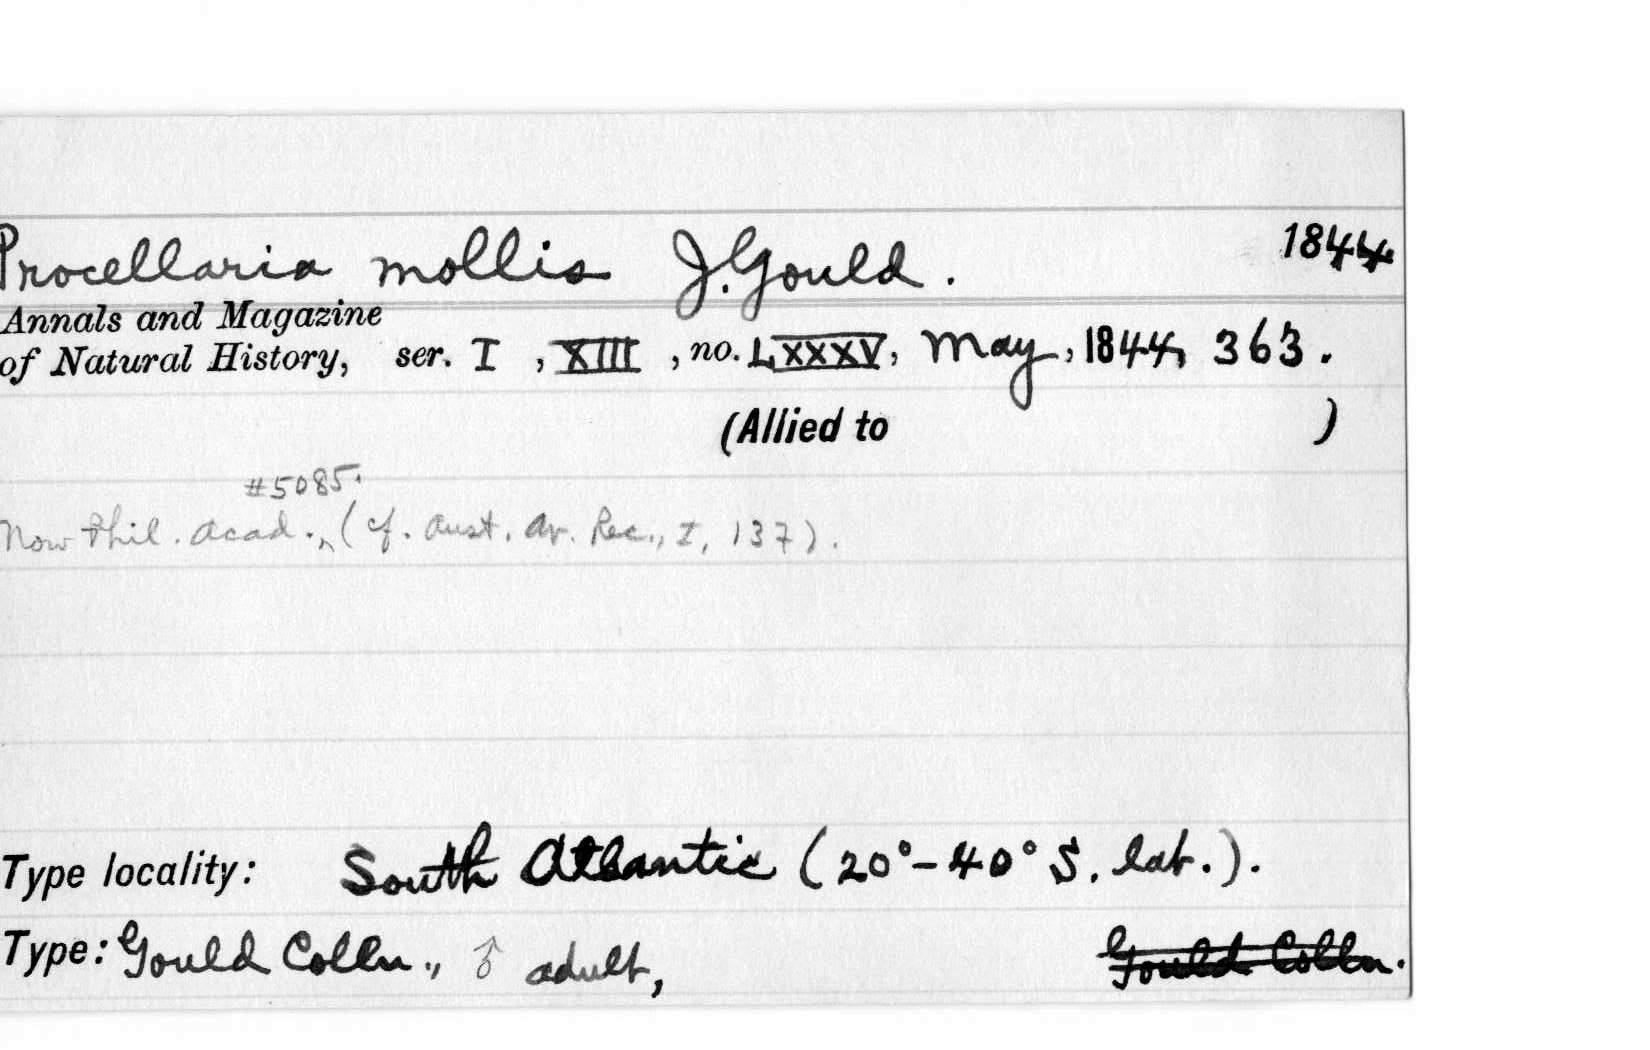 Procellaria mollis J. Gould. 1844
Annals and Magazine
of Natural History, ser. I, XIII, no. LXXXV, May, 1844, 363.
(Allied to )
#5085.
Now Phil. Acad., (cf. Aust. Av. Rec., I, 137).
Type locality: South Atlantic (20°-40° S. lat.).
Type: Gould Colln., ♂ adult, Gould Colln.